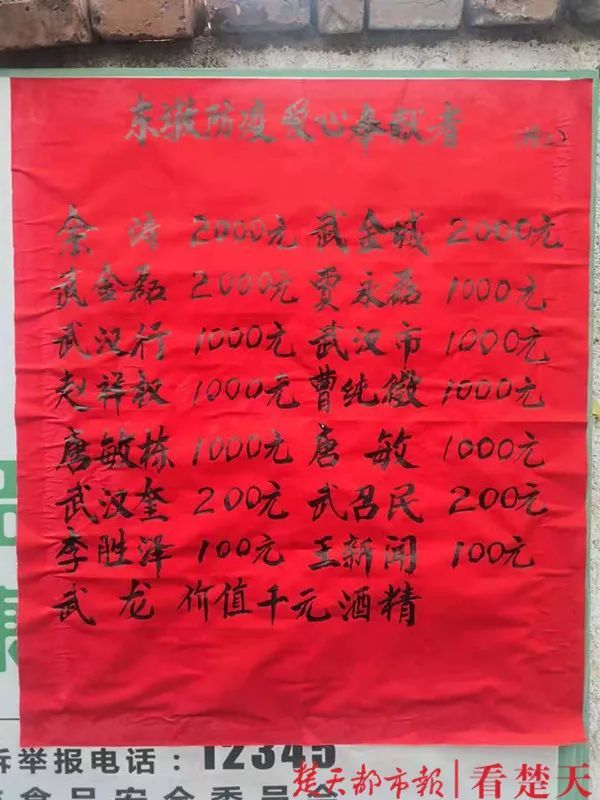 东激防疫爱心奉献者
余涛 2000元 武金城 2000元
武金磊 2000元 贾永磊 1000元
武汉行 1000元 武汉市 1000元
赵祥叙 1000元 曹纯 1000元
唐敏栋 1000元 唐敏 1000元
武汉奎 200元 武召民 200元
李胜泽 100元 王新闻 100元
武龙 价值千元酒精
诉举报电话：12345
食品安全委员会
楚天都市报|看楚天